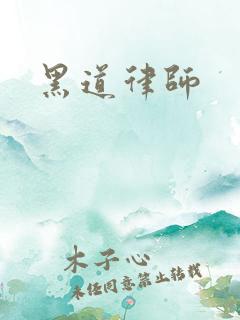 黑道律師
木子心
未经同意禁止转载